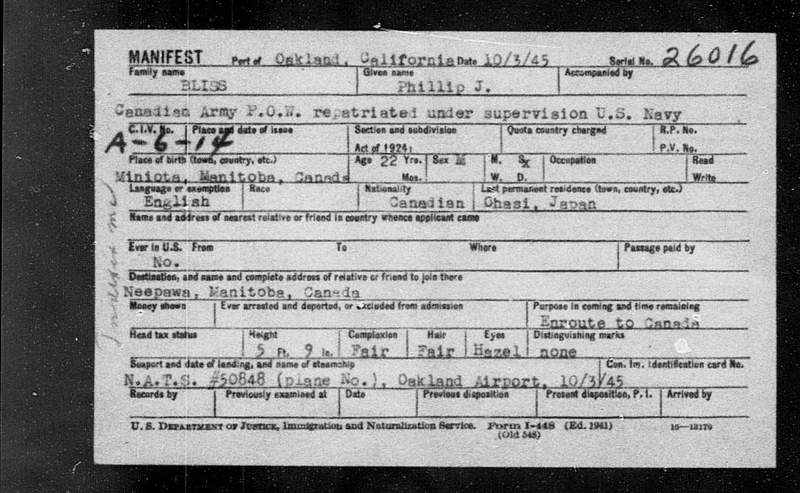 MANIFEST Port of Oakland, California Date 10/3/45 Serial No. 26016
Family name Given name Accompanied by
BLISS Phillip J.
Canadian Army P.O.W. repatriated under supervision U.S. Navy
C.I.V. No. Place and date of issue Section and subdivision Quota country charged R.P. No.
A-6-14 Act of 1924: P.V. No.
Place of birth (town, country, etc.) Age 22 Yrs. Sex M M. S. Occupation Read
Miniota, Manitoba, Canada Mos. W. D. Write
Language or exemption Race Nationality Last permanent residence (town, country, etc.)
English Canadian Ohasi, Japan
Name and address of nearest relative or friend in country whence applicant came
Ever in U.S. From To Where Passage paid by
No.
Destination, and name and complete address of relative or friend to join there
Neepawa, Manitoba, Canada
Money shown Ever arrested and deported, or excluded from admission Purpose in coming and time remaining
Enroute to Canada
Head tax status Height Complexion Hair Eyes Distinguishing marks
5 Ft. 9 In. Fair Fair Hazel none
Seaport and date of landing, and name of steamship Con. Im. Identification card No.
N.A.T.S. #50848 (plane No.), Oakland Airport, 10/3/45
Records by Previously examined at Date Previous disposition Present disposition, P.I. Arrived by
U. S. DEPARTMENT OF JUSTICE, Immigration and Naturalization Service. Form I-448 (Ed. 1941) 16—13179
(Old 548)